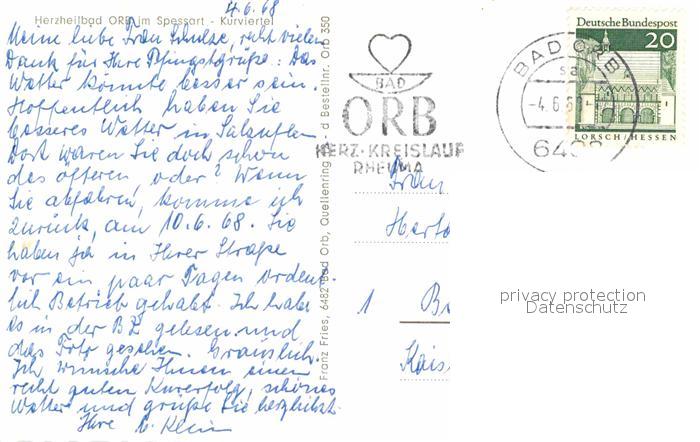 4.6.68
Herzheilbad ORB im Spessart - Kurviertel
Meine liebe Frau Schulze, recht vielen
Dank für Ihre Pfingstgrüße. Das
Wetter könnte besser sein.
Hoffentlich haben Sie
besseres Wetter in Salzuflen.
Dort waren Sie doch schon
des öfteren oder? Wenn
Sie abfahren, komme ich
zurück, am 10.6.68. Sie
haben ja in Ihrer Straße
vor ein paar Tagen ordent-
lich Betrieb gehabt. Ich habe
es in der BZ gelesen und
das Foto gesehen. Grauslich.
Ich wünsche Ihnen einen
recht guten Kurerfolg, schönes
Wetter und grüße Sie herzlichst
Ihre Klein
Franz Fries, 6482 Bad Orb, Quellenring
d Bestellnr. Orb 350
BAD
ORB
HERZ-KREISLAUF
RHEUMA
BAD ORB
-4.6.6
Deutsche Bundespost
20
LORSCH/HESSEN
Frau
1
Kais
privacy protection
Datenschutz